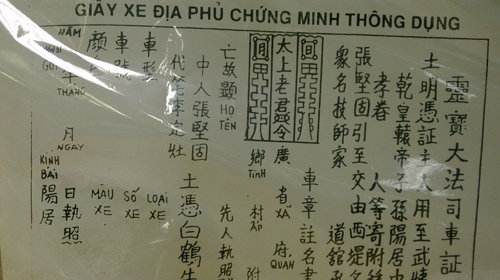 GIẤY XE ĐỊA PHỦ CHỨNG MINH THÔNG DỤNG
靈寶大法司車証
土明憑証主人用至武
乾皇轅帝子孫陽居
孝眷 人等寄附
張堅固引至交由西堤名
象名技師家 道館政
車章註名書
太上老君 令
廣 省 XÃ 府 QUAN
鄉 TỈNH 村 ẤP 附
亡故顯 HỌ TÊN 先人執照
中人張堅固
代笔李定壯 土憑白鶴
車形 LOẠI XE
車號 SỐ XE
顏色 MÀU XE
NĂM 年 THÁNG 月 NGÀY 日執照
NGƯỜI GỬI KÍNH BÁI 陽居